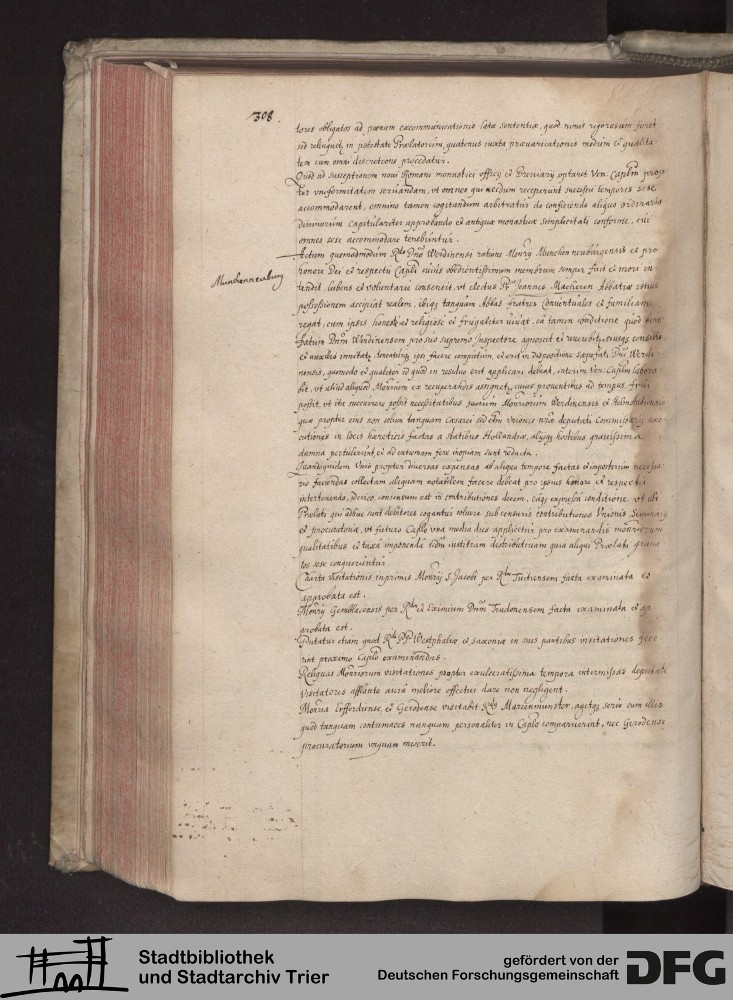 308
tores obligatos ad pœnam excommunicationis latæ sententiæ, quod nimis rigorosum foret
sed relinquet in potestate Prælatorum, quatenus iuxta prævaricationis modum et qualita-
tem cum omni discretione procedatur.
Quod ad susceptionem noui Romani monastici officij et Breuiarij optaret Ven: Caplm prop-
ter vniformitatem seruandam, vt omnes qui necdum receperunt successu temporis sese
accommodarent, omnino tamen cogitandum arbitratur de conficiendo aliquo ordinario
diuinorum capitulariter approbando et antiquæ monasticæ simplicitati conforme, cui
omnes sese accommodare tenebuntur.
Munchenneuburg
Actum quemadmodum Rdo Dno Werdinensi ratione Monrij Munchenneuburgensis et pro
honore Dei et respectu Capli cuius obedientissimum membrum semper fuit et mori in-
tendit, lubens et voluntarie consensit, vt electus Pr Joannes Macheren Abbatiæ istius
possessionem accipiat realem, ibiq tanquam Abbas fratres Conuentuales et familiam
regat, cum ipsis honeste et religiose et frugaliter viuat, ea tamen conditione quod
fatum Dnm Werdinensem pro suo supremo Inspectore agnoscat et reuereatur eiusq consilio
et auxilio innitatur teneaturq ipsi facere computum, et erit in dispositione sæpefati Dni Werdi-
nensis, quomodo et qualiter id quod in residuo erit applicari debeat, interim Ven: Caplm labora-
bit, vt aliud aliquod Monrium ex recuperandis assignetur, cuius prouentibus ad tempus frui
possit, vt ita succurrere possit necessitatibus suorum Monriorum Werdinensis et Helmstadiensis
quæ propter eius non solum tanquam Cæsarei sed etm Vnionis nræ deputati Commissarij exe-
cutiones in locis hæreticis factas a statibus Hollandiæ, alijsq hostibus grauissima
damna pertulerunt, et ad extremam fere inopiam sunt redacta.
Quandoquidem Vnio propter diuersas expensas ab aliquo tempore factas et imposterum necessa-
rio faciendas collectam aliquam notabilem facere debeat pro ipsius honore et respectu
intertenendo, denuo consensum est in contributiones decem, eaq expressa conditione, vt ubi
Prælati qui adhuc sunt debitores cogantur soluere sub censuris contributiones Vnionis Seminarij
et procuratoriæ, vt futuro Caplo vna media dies applicetur pro examinandis monriorum
qualitatibus et taxa imponenda scdm iustitiam distributiuam quia aliqui Prælati graua-
tos sese conqueruntur.
Charta visitationis inprimis Monrij S. Jacobi per Rdm Tuitiensem facta examinata et
approbata est.
Monrij Gemblacensis per Rdm et Eximium Dnm Trudonensem facta examinata et ap-
probata est.
Putatur etiam quod Rdi PP Westphaliæ et Saxoniæ in suis partibus visitationes fece-
rint proximo Caplo examinandas.
Reliquas Monriorum visitationes propter exulceratissima tempora intermissas deputati
Visitatores afflante aura meliore effectui dare non negligent.
Monria Erffordiense, et Gerodense visitabit Rdus Marienmunster, agetq serio cum illis
quod tanquam contumaces nunquam personaliter in Caplo comparuerint, nec Gerodense
procuratorium vnquam miserit.
Stadtbibliothek
und Stadtarchiv Trier
gefördert von der
Deutschen Forschungsgemeinschaft
DFG